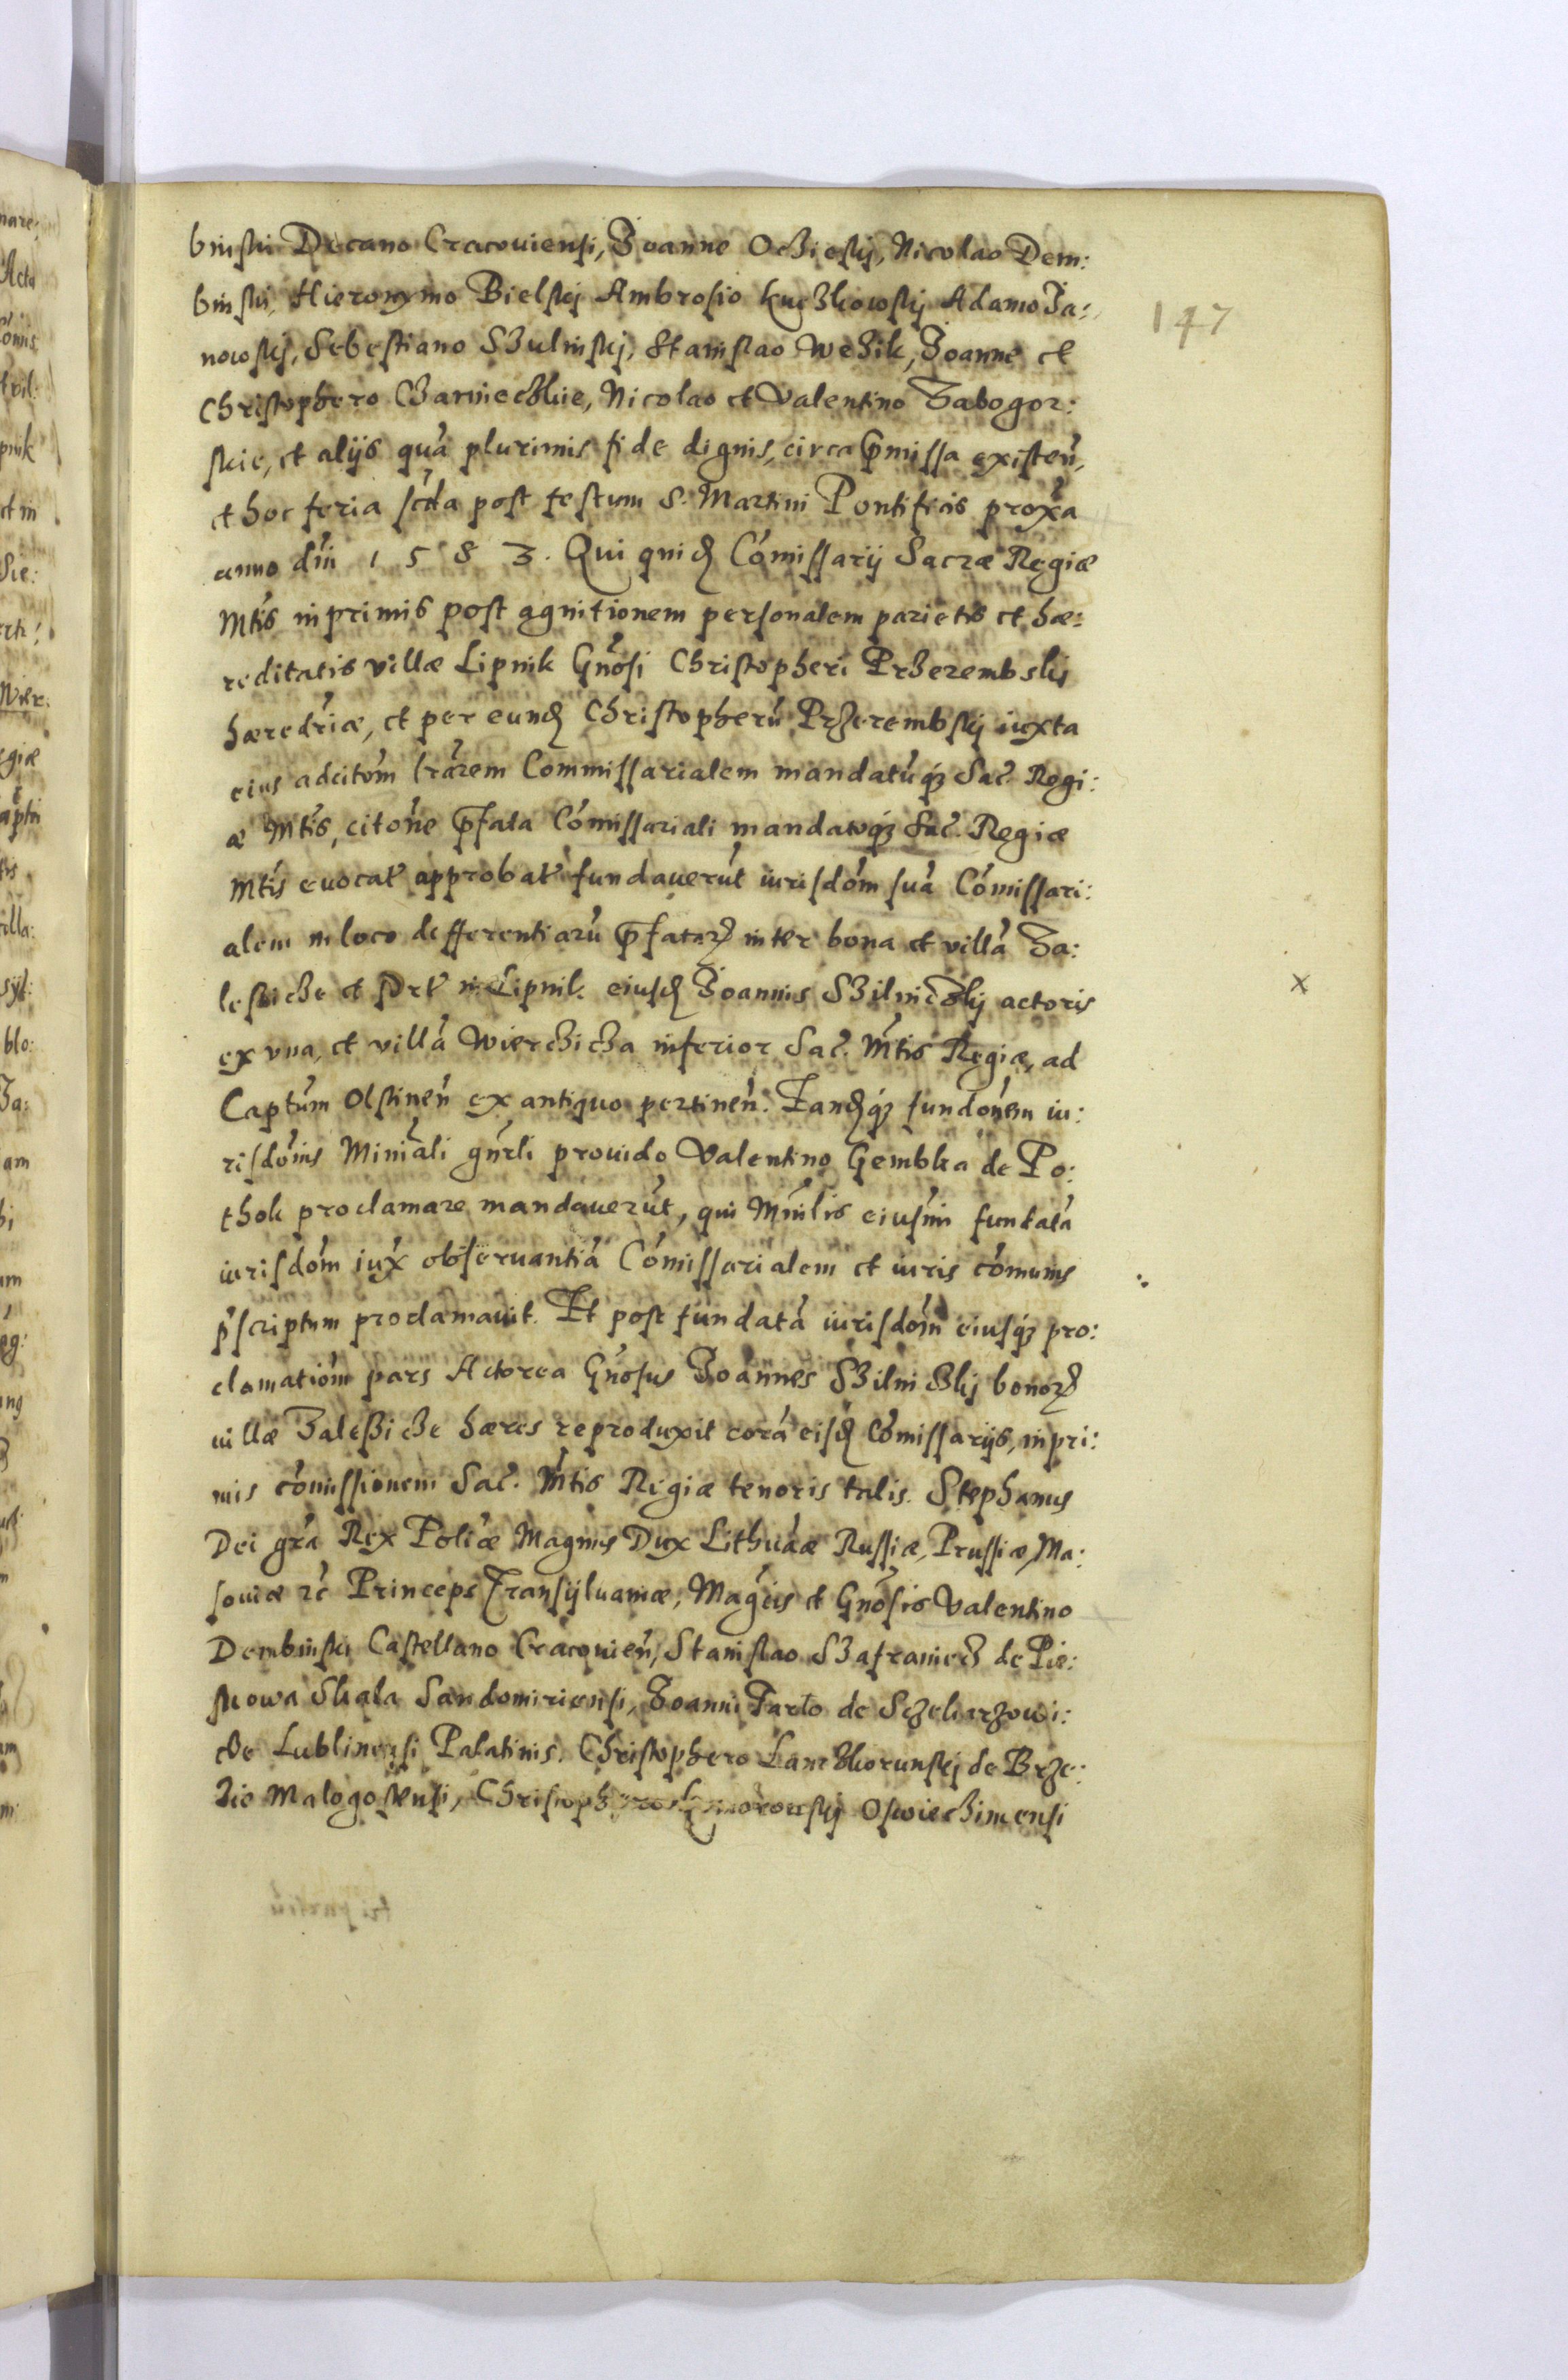 binski Decano Cracouiensi, Joanne Ocziesky, Nicolao Dem:
binski, Hieronymo Bielskj Ambrosio kuczkowskij Adamo Ja:
nowskj, Sebestiano Szulinskj, Stanislao Wezik, Joanne et
Christophero Czarnieczkie, Nicolao et Valentino Zabogor:
skie, et alijs quā plurimis fide dignis, circa p̄missa existen̄,
et hoc feria sc̄da post festum S. Martini Pontificis prox̄a
anno dn̄i 1583. Qui quidȩ Com̄issarij Sacræ Regiæ
Mtīs inprimis post agnitionem personalem parietis et hæ:
reditatis villæ Lipnik Gn̄osi Christopheri Przerembskij
hæredr̄iæ, et per eundȩ Christopherū Przerembskij iuxta
eius adcitōm lr̄arem Commissarialem mandatūqꝫ Sac̄. Regi:
æ Mtīs, citōne p̄fata Com̄issariali mandatoqꝫ Sac̄. Regiæ
Mtīs euocat̄ approbat̄ fundauerūt iurisdōm suā Com̄issari:
alem in loco defferentiarū p̄fatarꝫ inter bona et villā Za:
leskicze et Sort̄ in Lipnik eiusdȩ Joannis Szilniczkij actoris
ex vna, et villā Wierzchicza inferior Sac̄. Mtīs Regiæ, ad
Captūm Olstinen̄ ex antiquo pertinen̄. Tandȩqꝫ fundōnem iu:
risdōnis Mini̅ali gn̄rli prouido Valentino Gembka de Po:
thok proclamare mandauerūt, qui Mn̄ilis eiusm̄i fundatā
iurisdōm iux̄ obseruantiā Com̄issarialem et iuris com̄unis
p̄scriptum proclamauit. Et post fundatā iurisdōm̄ eiusqꝫ pro:
clamatiōm pars Actorea Gn̄osus Joannes Szilniczkij bonorꝫ
villæ Zaleßicze hæres reproduxit corā eisdȩ Com̄issarijs, inpri:
mis com̄issionem Sac̄. Mtīs Regiæ tenoris talis. Stephanus
Dei gr̄a Rex Poliǣ Magnus Dux Lithuāæ Russiæ, Prussiæ, Ma:
souiæ ꝛc̄ Princeps Transyluaniæ, Magcīs et Gn̄osis Valentino
Dembinski Castellano Cracouien̄, Stanislao Szafraniecz de Pie:
skowa Skala Sandomiriensi, Joanni Tarlo de Sczekarzowi:
cze Lublinensi Palatinis. Christophero Lanczkorunskj de Brze:
zie Malogostensi, Christophero Komorowskij Oswieczimensi
147
x